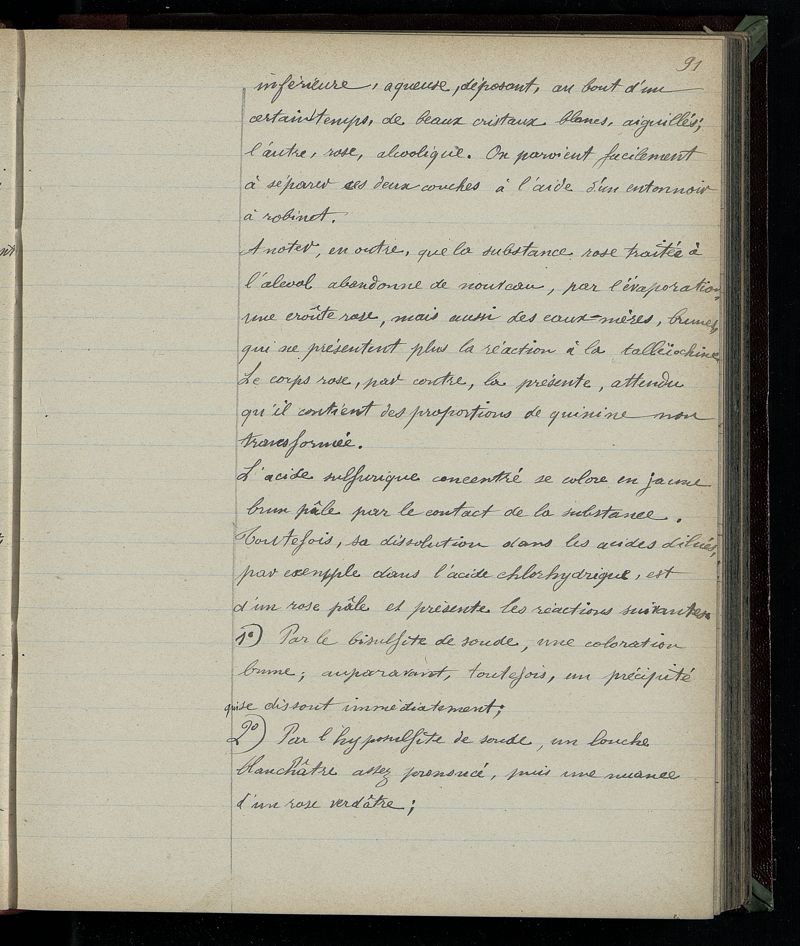 91
inférieure, aqueuse, déposant, au bout d'un
certain temps, de beaux cristaux blancs, aiguillés;
l'autre, rose, alcoolique. On parvient facilement
à séparer ces deux couches à l'aide d'un entonnoir
à robinet.
A noter, en outre, que la substance rose traitée à
l'alcool abandonne de nouveau, par l'évaporation,
une croûte rose, mais aussi des eaux-mères, brunes,
qui ne présentent plus la réaction à la talléiochine.
Le corps rose, par contre, la présente, attendu
qu'il contient des proportions de quinine non
transformée.
L'acide sulfurique concentré se colore en jaune
brun pâle par le contact de la substance.
Toutefois, sa dissolution dans les acides dilués,
par exemple dans l'acide chlorhydrique, est
d'un rose pâle et présente les réactions suivantes
1º) Par le bisulfite de soude, une coloration
brune; auparavant, toutefois, un précipité
qui se dissout immédiatement;
2º) Par l'hyposulfite de soude, un louche
blanchâtre assez prononcé, puis une nuance
d'un rose verdâtre;